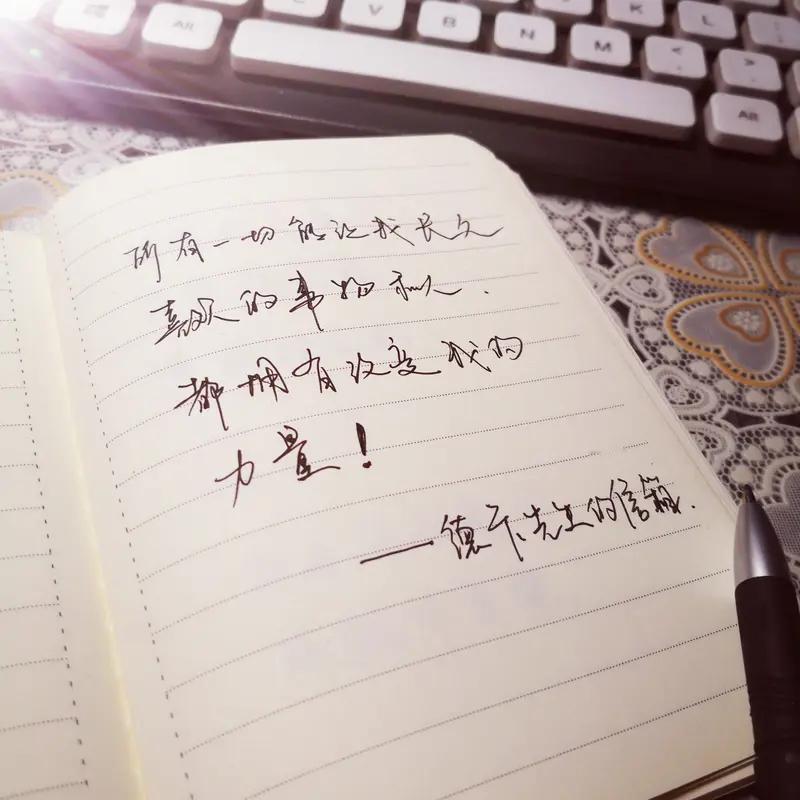 Alt
C
V
B
N
M
K
L
Alt
所有一切能让我长久
喜欢的事物和人.
都拥有改变我的
力量！
——德卡先生的信箱.